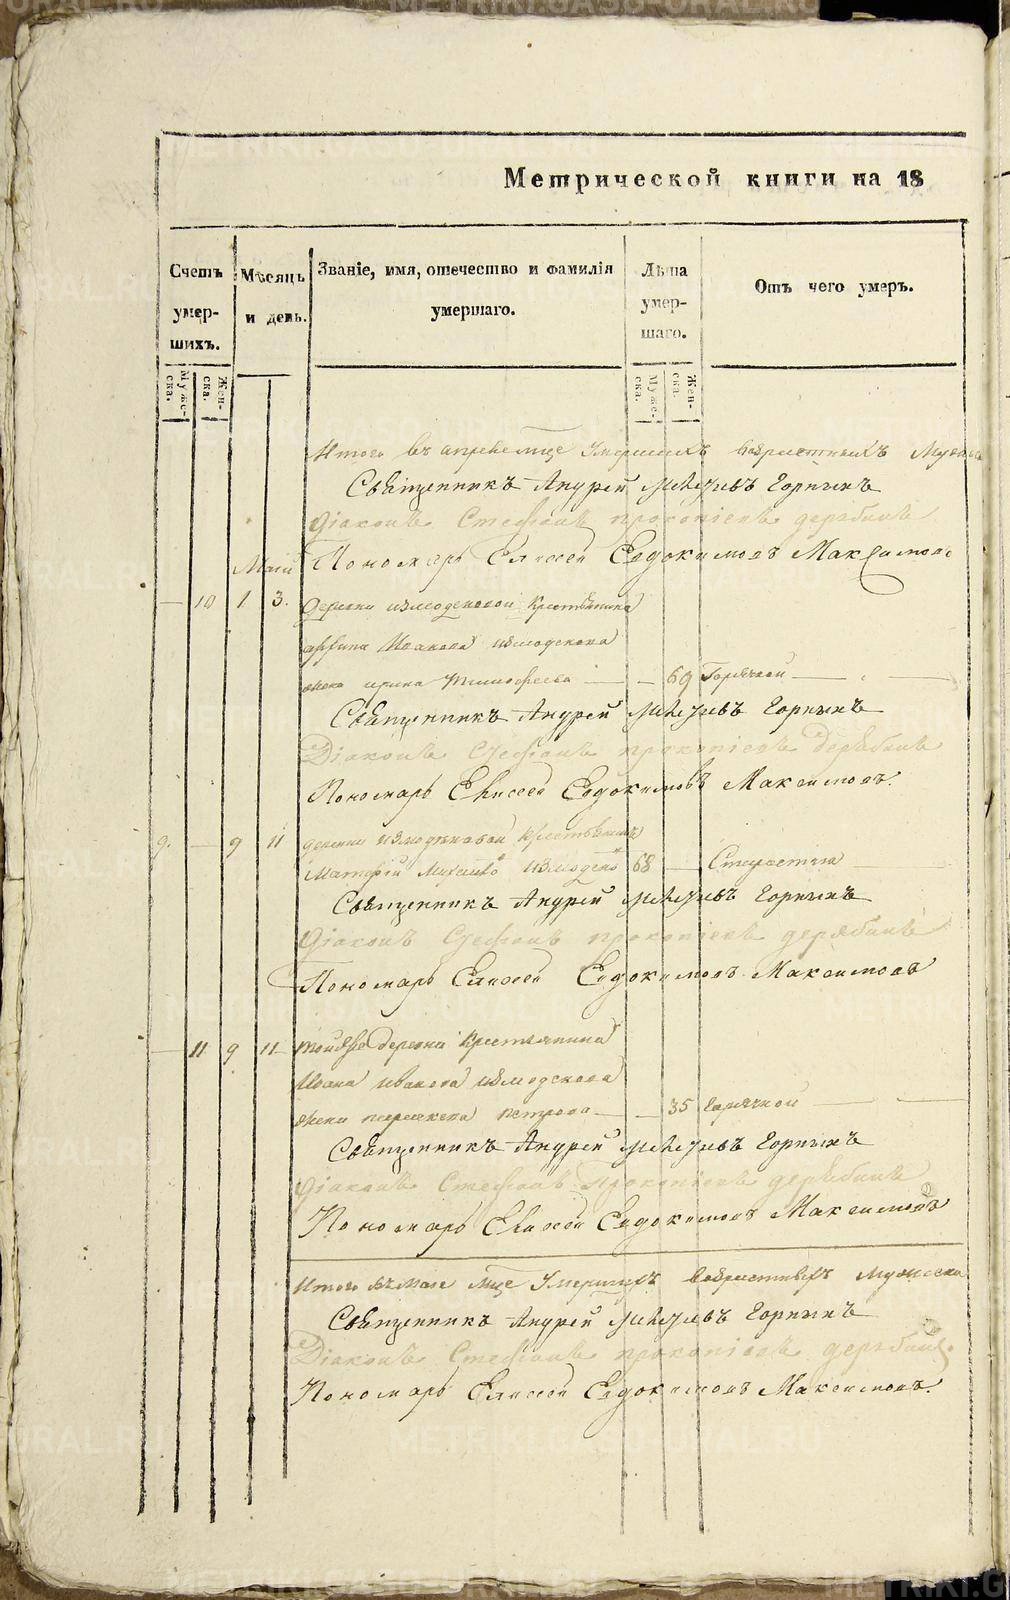 Метрической книги на 18
Счетъ умер-шихъ.
Муже-ска.
Жен-ска.
Мѣсяцъ и день.
Званіе, имя, отечество и фамилія умершаго.
Лѣта умер-шаго.
Муже-ска.
Жен-ска.
Отъ чего умеръ.
Итого въ апреле мце Умершихъ
Священникъ Андрей Горныхъ
Діаконъ Стефанъ прокопіевъ дерябинъ
Пономарь Елисей Евдокимовъ Максимовъ
Маія
— 10 1 3. Деревни Крестьянина
Ивакова
жена ирина Тимофеева — — 69 Горячкой —
Священникъ Андрей Горныхъ
Діаконъ Стефанъ прокопіевъ дерябинъ
Пономарь Елисей Евдокимовъ Максимовъ.
9. — 9 11 деревни Крестьянинъ
68 — Старостью —
Священникъ Андрей Горныхъ
Діаконъ Стефанъ прокопіевъ дерябинъ
Пономарь Елисей Евдокимовъ Максимовъ
— 11 9 11 тойже деревни Крестьянина
Ивана иванова
жена петрова — — 35 Горячкой —
Священникъ Андрей Горныхъ
Діаконъ Стефанъ Прокопіевъ дерябинъ
Пономарь Елисей Евдокимовъ Максимовъ
Итого въ Мае мце Умершихъ мужеска
Священникъ Андрей Горныхъ
Діаконъ Стефанъ прокопіевъ дерябинъ
Пономарь Елисей Евдокимовъ Максимовъ.
METRIKI.GASO-URAL.RU